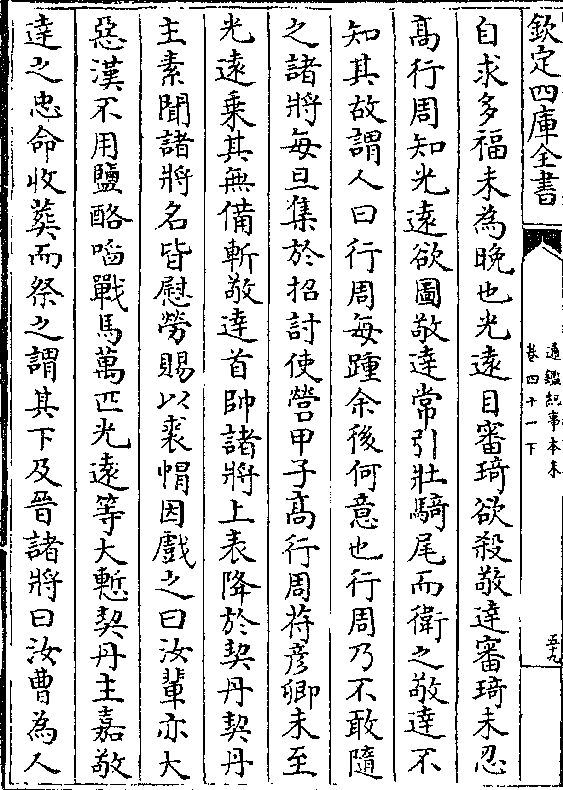 欽定四庫全書
通鑑紀事本末
卷四十一下
五九
自求多福未為晚也光遠目審琦欲殺敬達審琦未忍
髙行周知光遠欲圖敬達常引壯騎尾而衛之敬達不
知其故謂人曰行周每踵余後何意也行周乃不敢隨
之諸將每旦集於招討使營甲子髙行周苻彦卿未至
光遠乘其無備斬敬達首帥諸將上表降於契丹契丹
主素聞諸將名皆慰勞賜以裘帽因戲之曰汝輩亦大
惡漢不用鹽酪㗖戰馬萬匹光遠等大慙契丹主嘉敬
達之忠命收葬而祭之謂其下及晉諸將曰汝曹為人